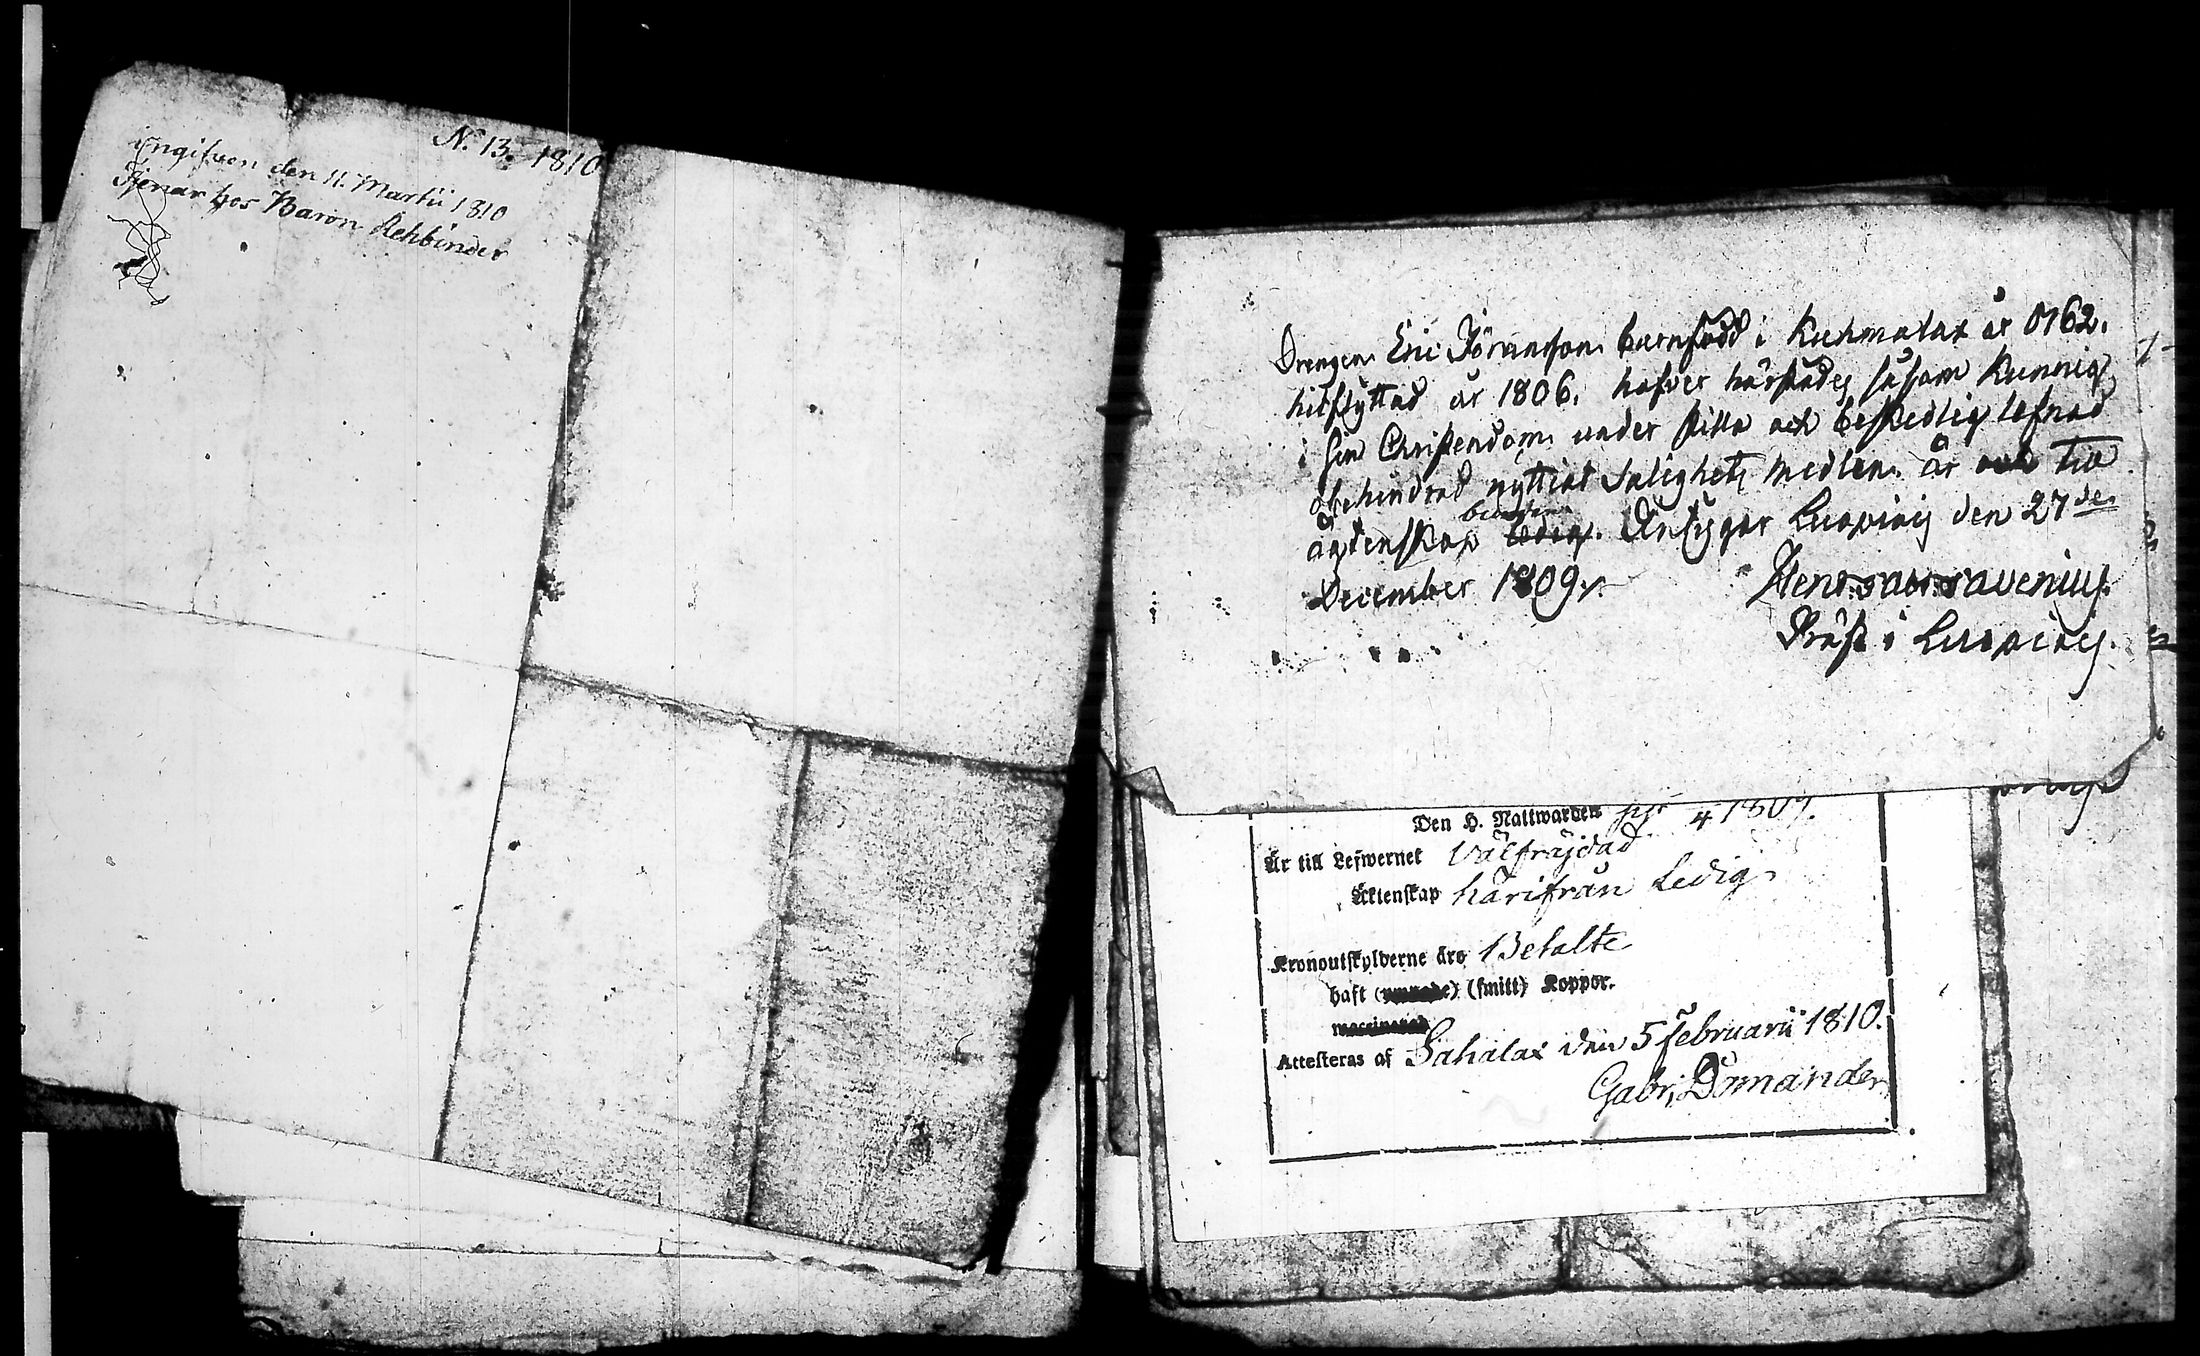 N. 13. 1810
ingifven den 11. Martii 1810
Tjenar hos Baron Rehbinder
Drengen Eric Jöransson barnfödd i Kuhmalax år 1762.
hitflyttad år 1806. hafver härstädes såsom kunnig
i sin Christendom under stilla och beskedlig lefnad
obehindrad nyttiat Salighets medlen. är och till
ägtenskap ledig. Den 27de
December 1809.
Präst i
Den H. Nattwarden 4 1809.
Är till Lefwernet Välfräjdad
Äktenskap härifrån Ledig
Kronoutskylderne äro Betalte
haft (smitt) Koppor.
Attesteras af Sahalax den 5 Februarii 1810.
Gabr. Domander